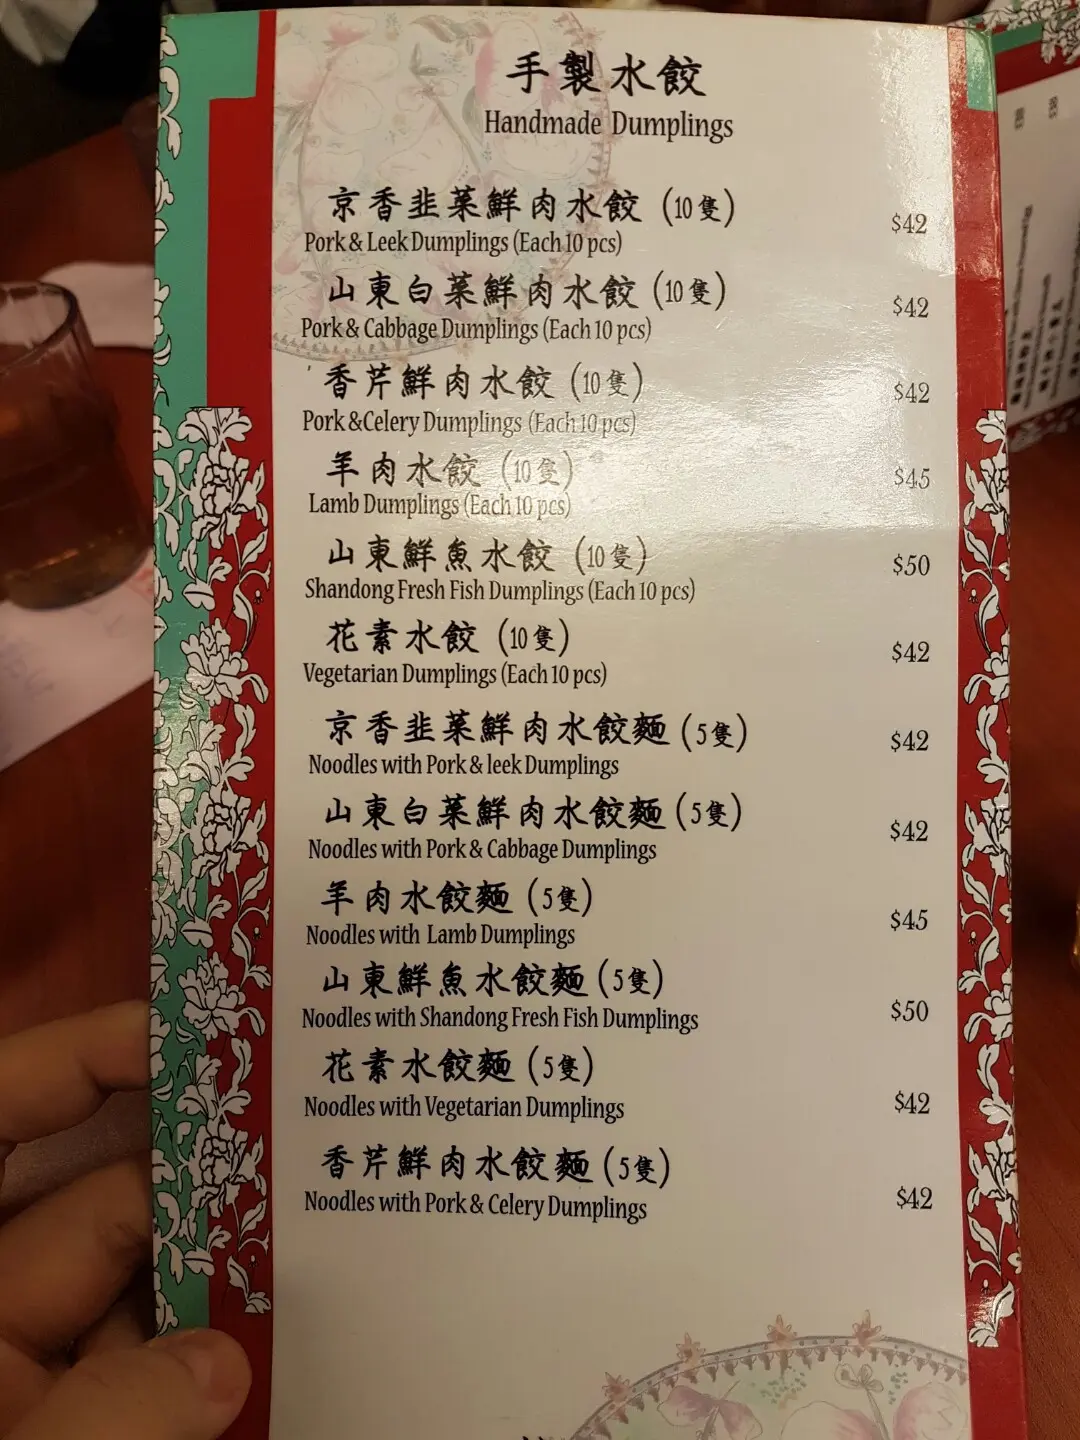 手製水餃
Handmade Dumplings
京香韭菜鮮肉水餃 (10隻)
Pork & Leek Dumplings (Each 10 pcs)
$42
山東白菜鮮肉水餃 (10隻)
Pork & Cabbage Dumplings (Each 10 pcs)
$42
香芹鮮肉水餃 (10隻)
Pork &Celery Dumplings (Each 10 pcs)
$42
羊肉水餃 (10隻)
Lamb Dumplings (Each 10 pcs)
$45
山東鮮魚水餃 (10隻)
Shandong Fresh Fish Dumplings (Each 10 pcs)
$50
花素水餃 (10隻)
Vegetarian Dumplings (Each 10 pcs)
$42
京香韭菜鮮肉水餃麵 (5隻)
Noodles with Pork & leek Dumplings
$42
山東白菜鮮肉水餃麵 (5隻)
Noodles with Pork & Cabbage Dumplings
$42
羊肉水餃麵 (5隻)
Noodles with Lamb Dumplings
$45
山東鮮魚水餃麵 (5隻)
Noodles with Shandong Fresh Fish Dumplings
$50
花素水餃麵 (5隻)
Noodles with Vegetarian Dumplings
$42
香芹鮮肉水餃麵 (5隻)
Noodles with Pork & Celery Dumplings
$42